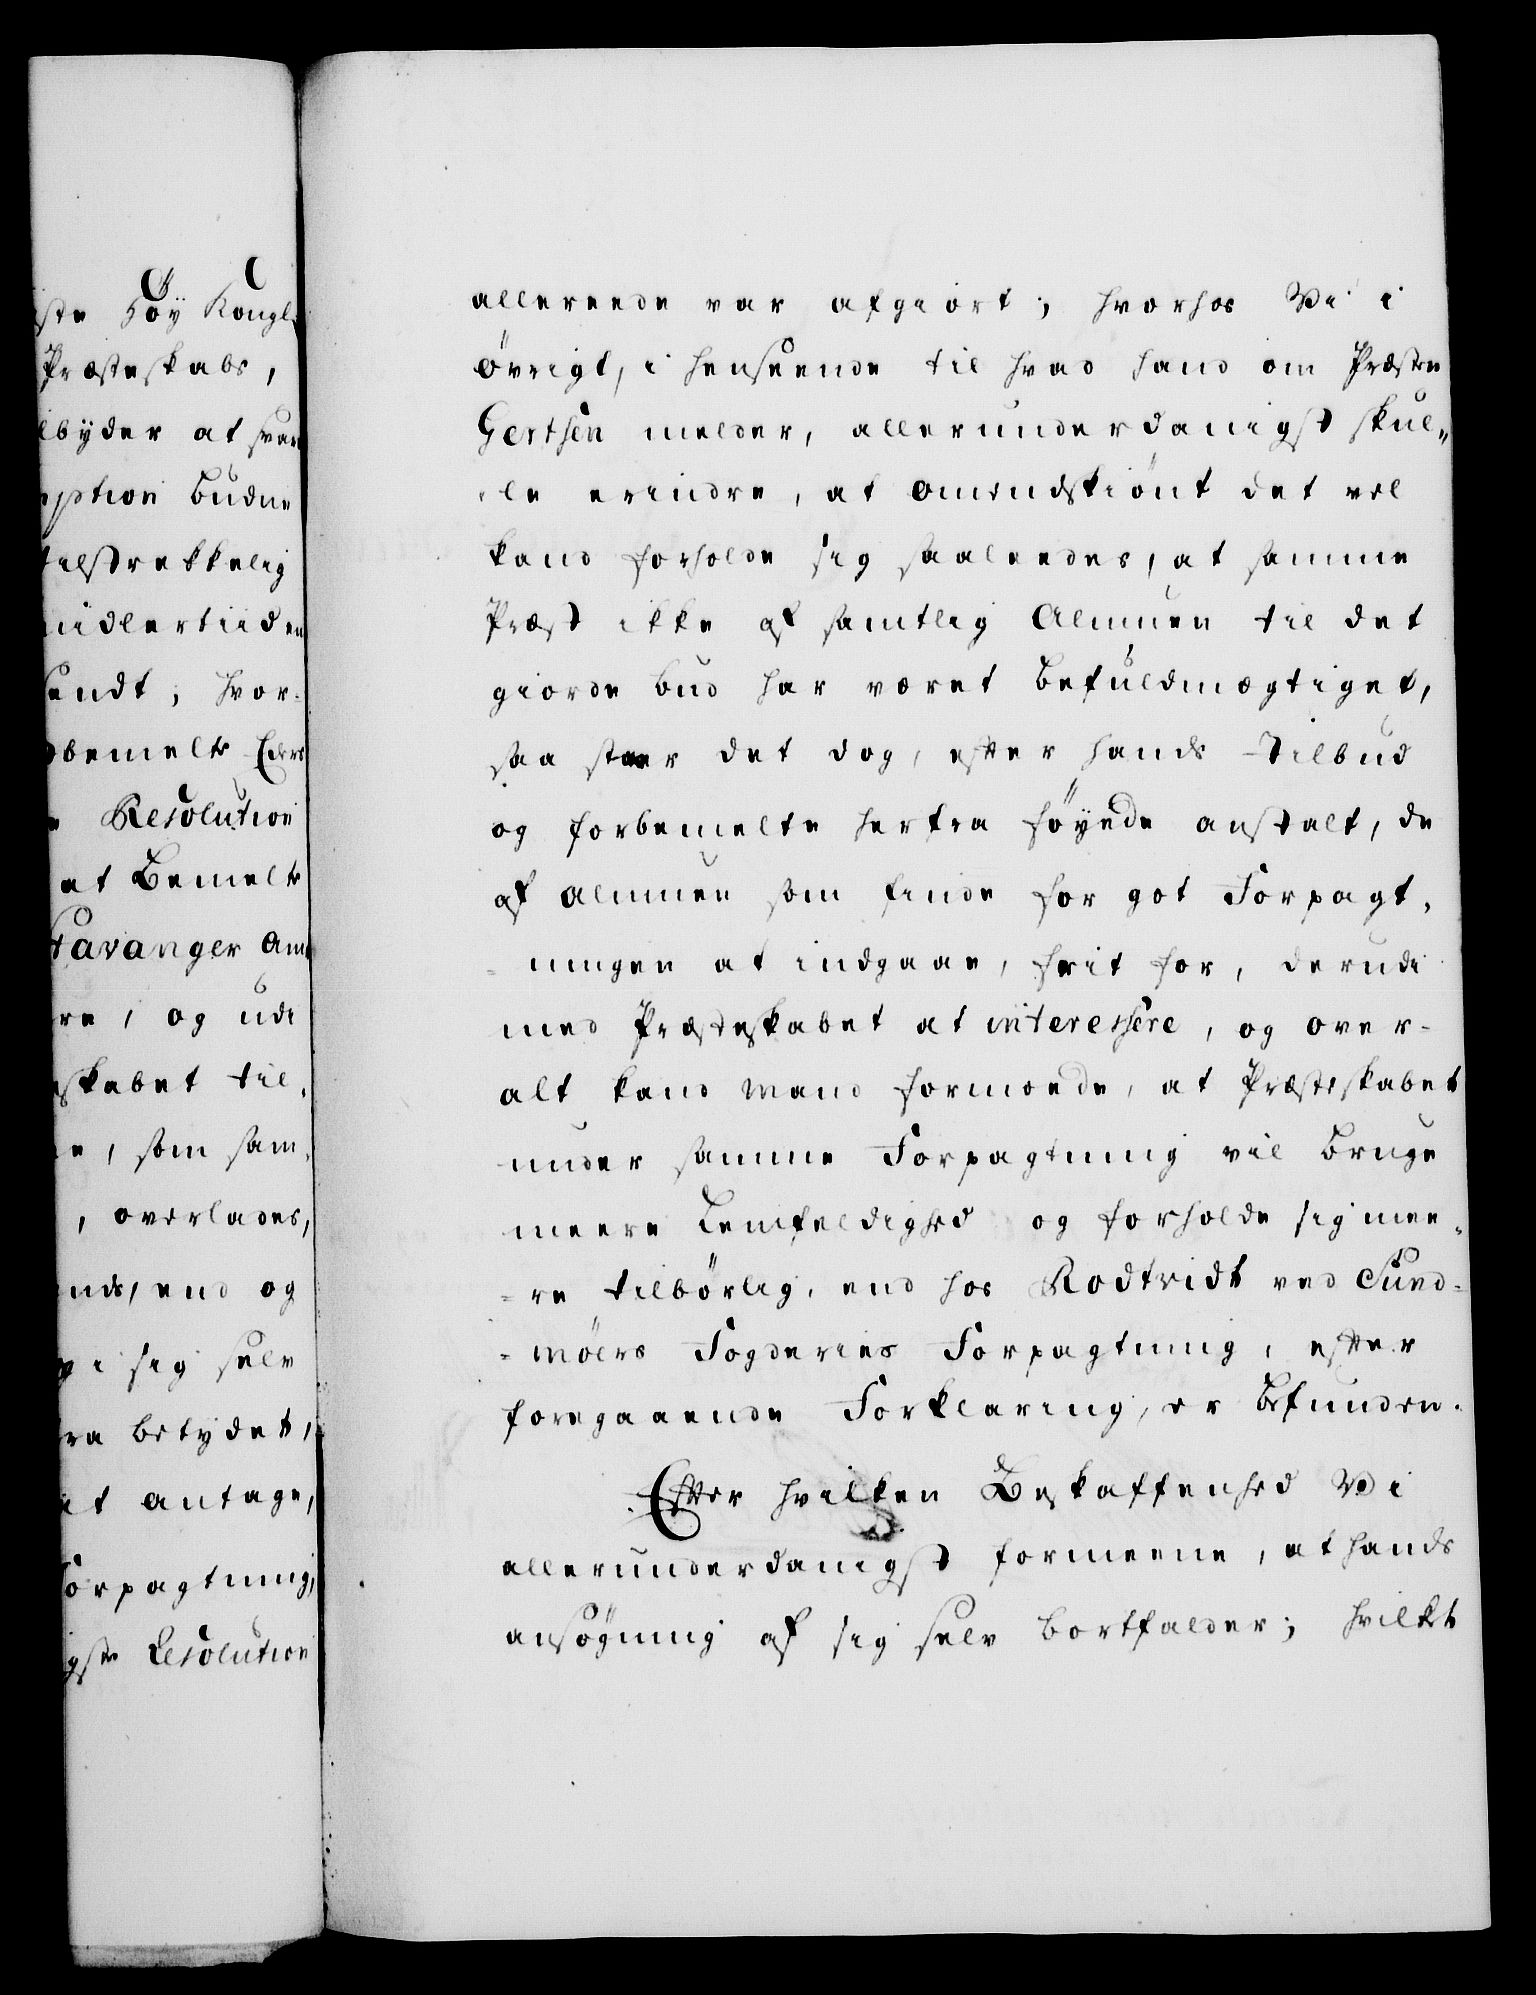 ste Höy Kongl.
Præsteskabs,
lbyder at svar
ption budne
tilstrekkelig
midlertiiden
sendt, hvor-
bemelte Eders
Resolution
at Bemelte
Stavanger Amt
re, og udi
skabet til-
e, som sam-
, overlades,
ends, end og
i sig selv
ra betydet,
at antage,
Forpagtning,
gste Resolution
allereede var afgiort; hvorhos Vi i
övrigt, i henseende til hvad hand om Præsten
Gertsen melder, allerunderdanigst skul-
le erindre, at omendskiönt det vel
kand forholde sig saaleedes, at samme
Præst ikke af samtlig Almuen til det
giorde bud har været befuldmægtiget,
saa staar det dog, efter hands Tilbud
og forbemelte herfra föyede anstalt, de
af almuen som finde for got Forpagt-
ningen at indgaae, frit for, derudi
med Præsteskabet at interessere, og over-
alt kand mand formoede, at Præsteskabet
under samme Forpagtning vil bruge
meere Lemfeldighed og forholde sig mee-
re tilbörlig, end hos Rodtvidt ved Sund-
möers Fogderies Forpagtning, efter
foregaaende Forklaring, er befunden.
Efter hvilken Beskaffenhed Vi
allerunderdanigst formeene, at hands
ansögning af sig selv bortfalder; hvilket